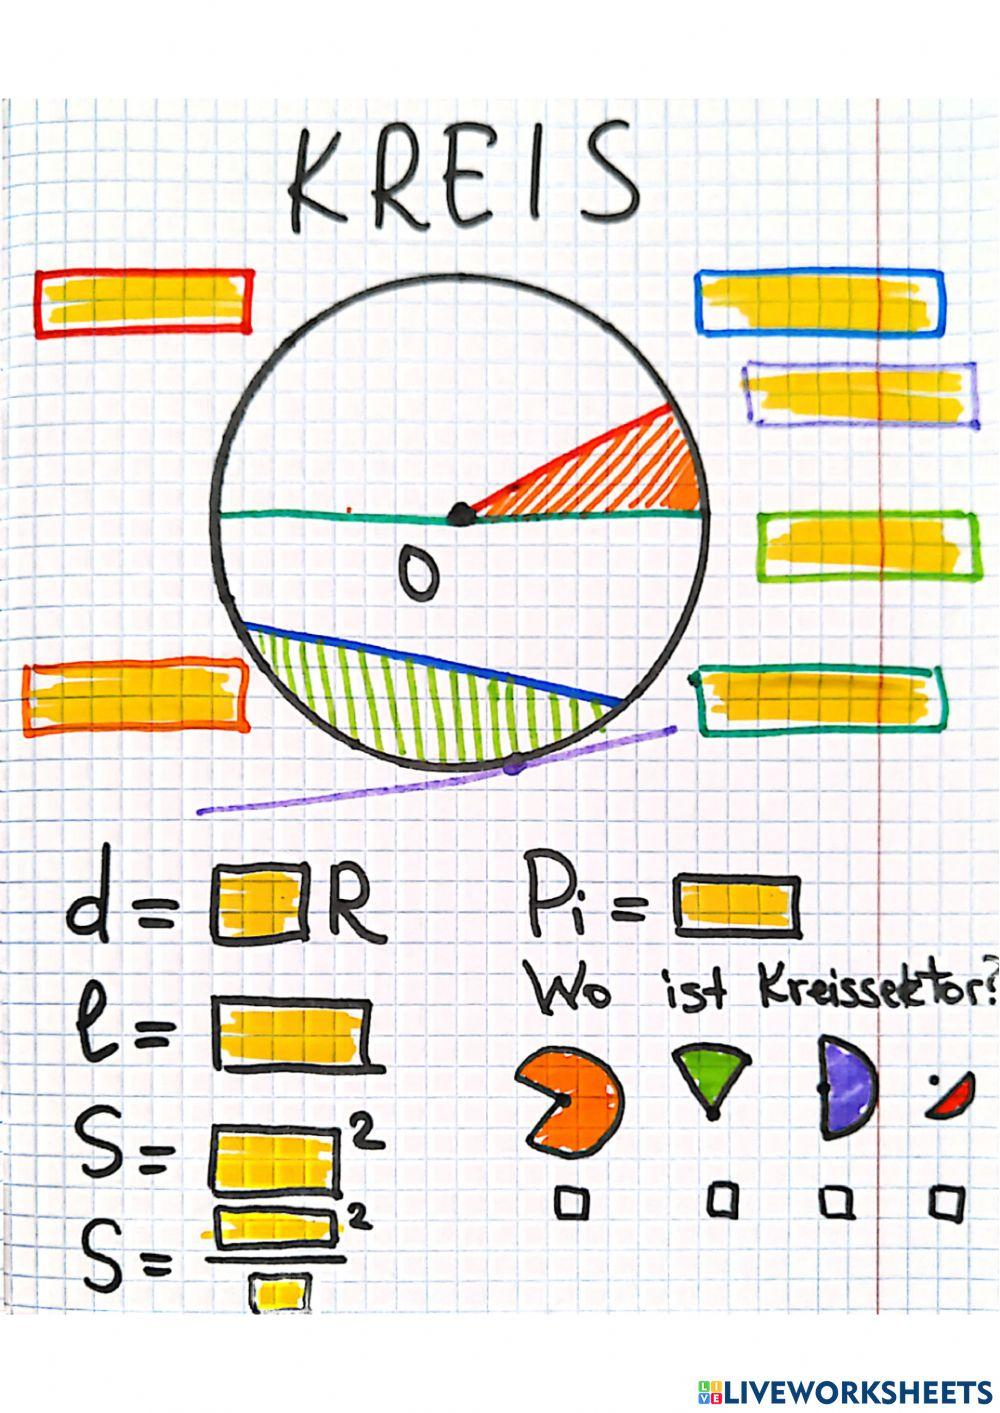 KREIS
O
d = R
Pi =
l =
Wo ist Kreissektor?
S = ²
S = ²
LIVE LIVEWORKSHEETS